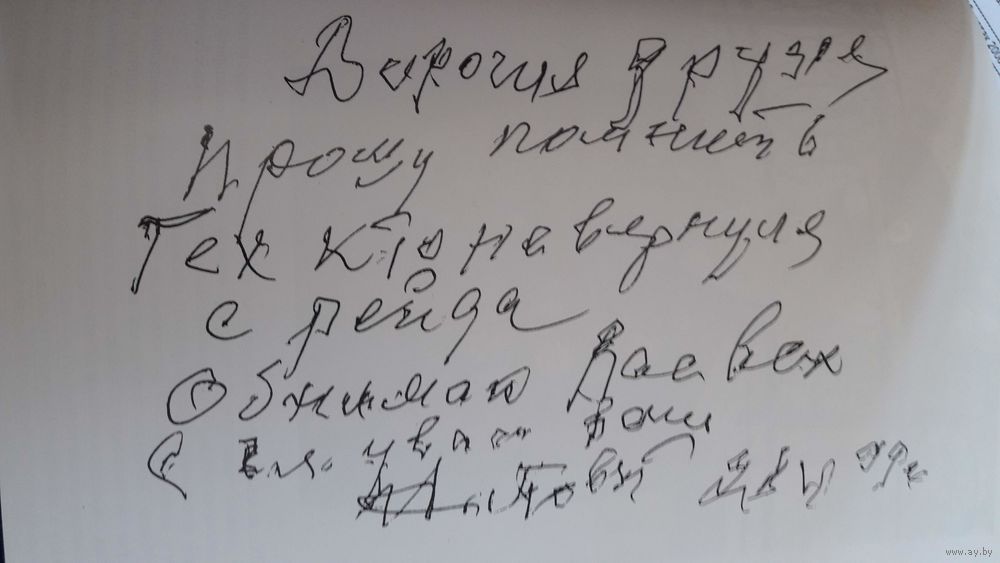 Дорогия друзя
Прошу помнить
Тех кто не вернулся
с рейда
Обнимаю Вас всех
С ув ваш
www.ay.by